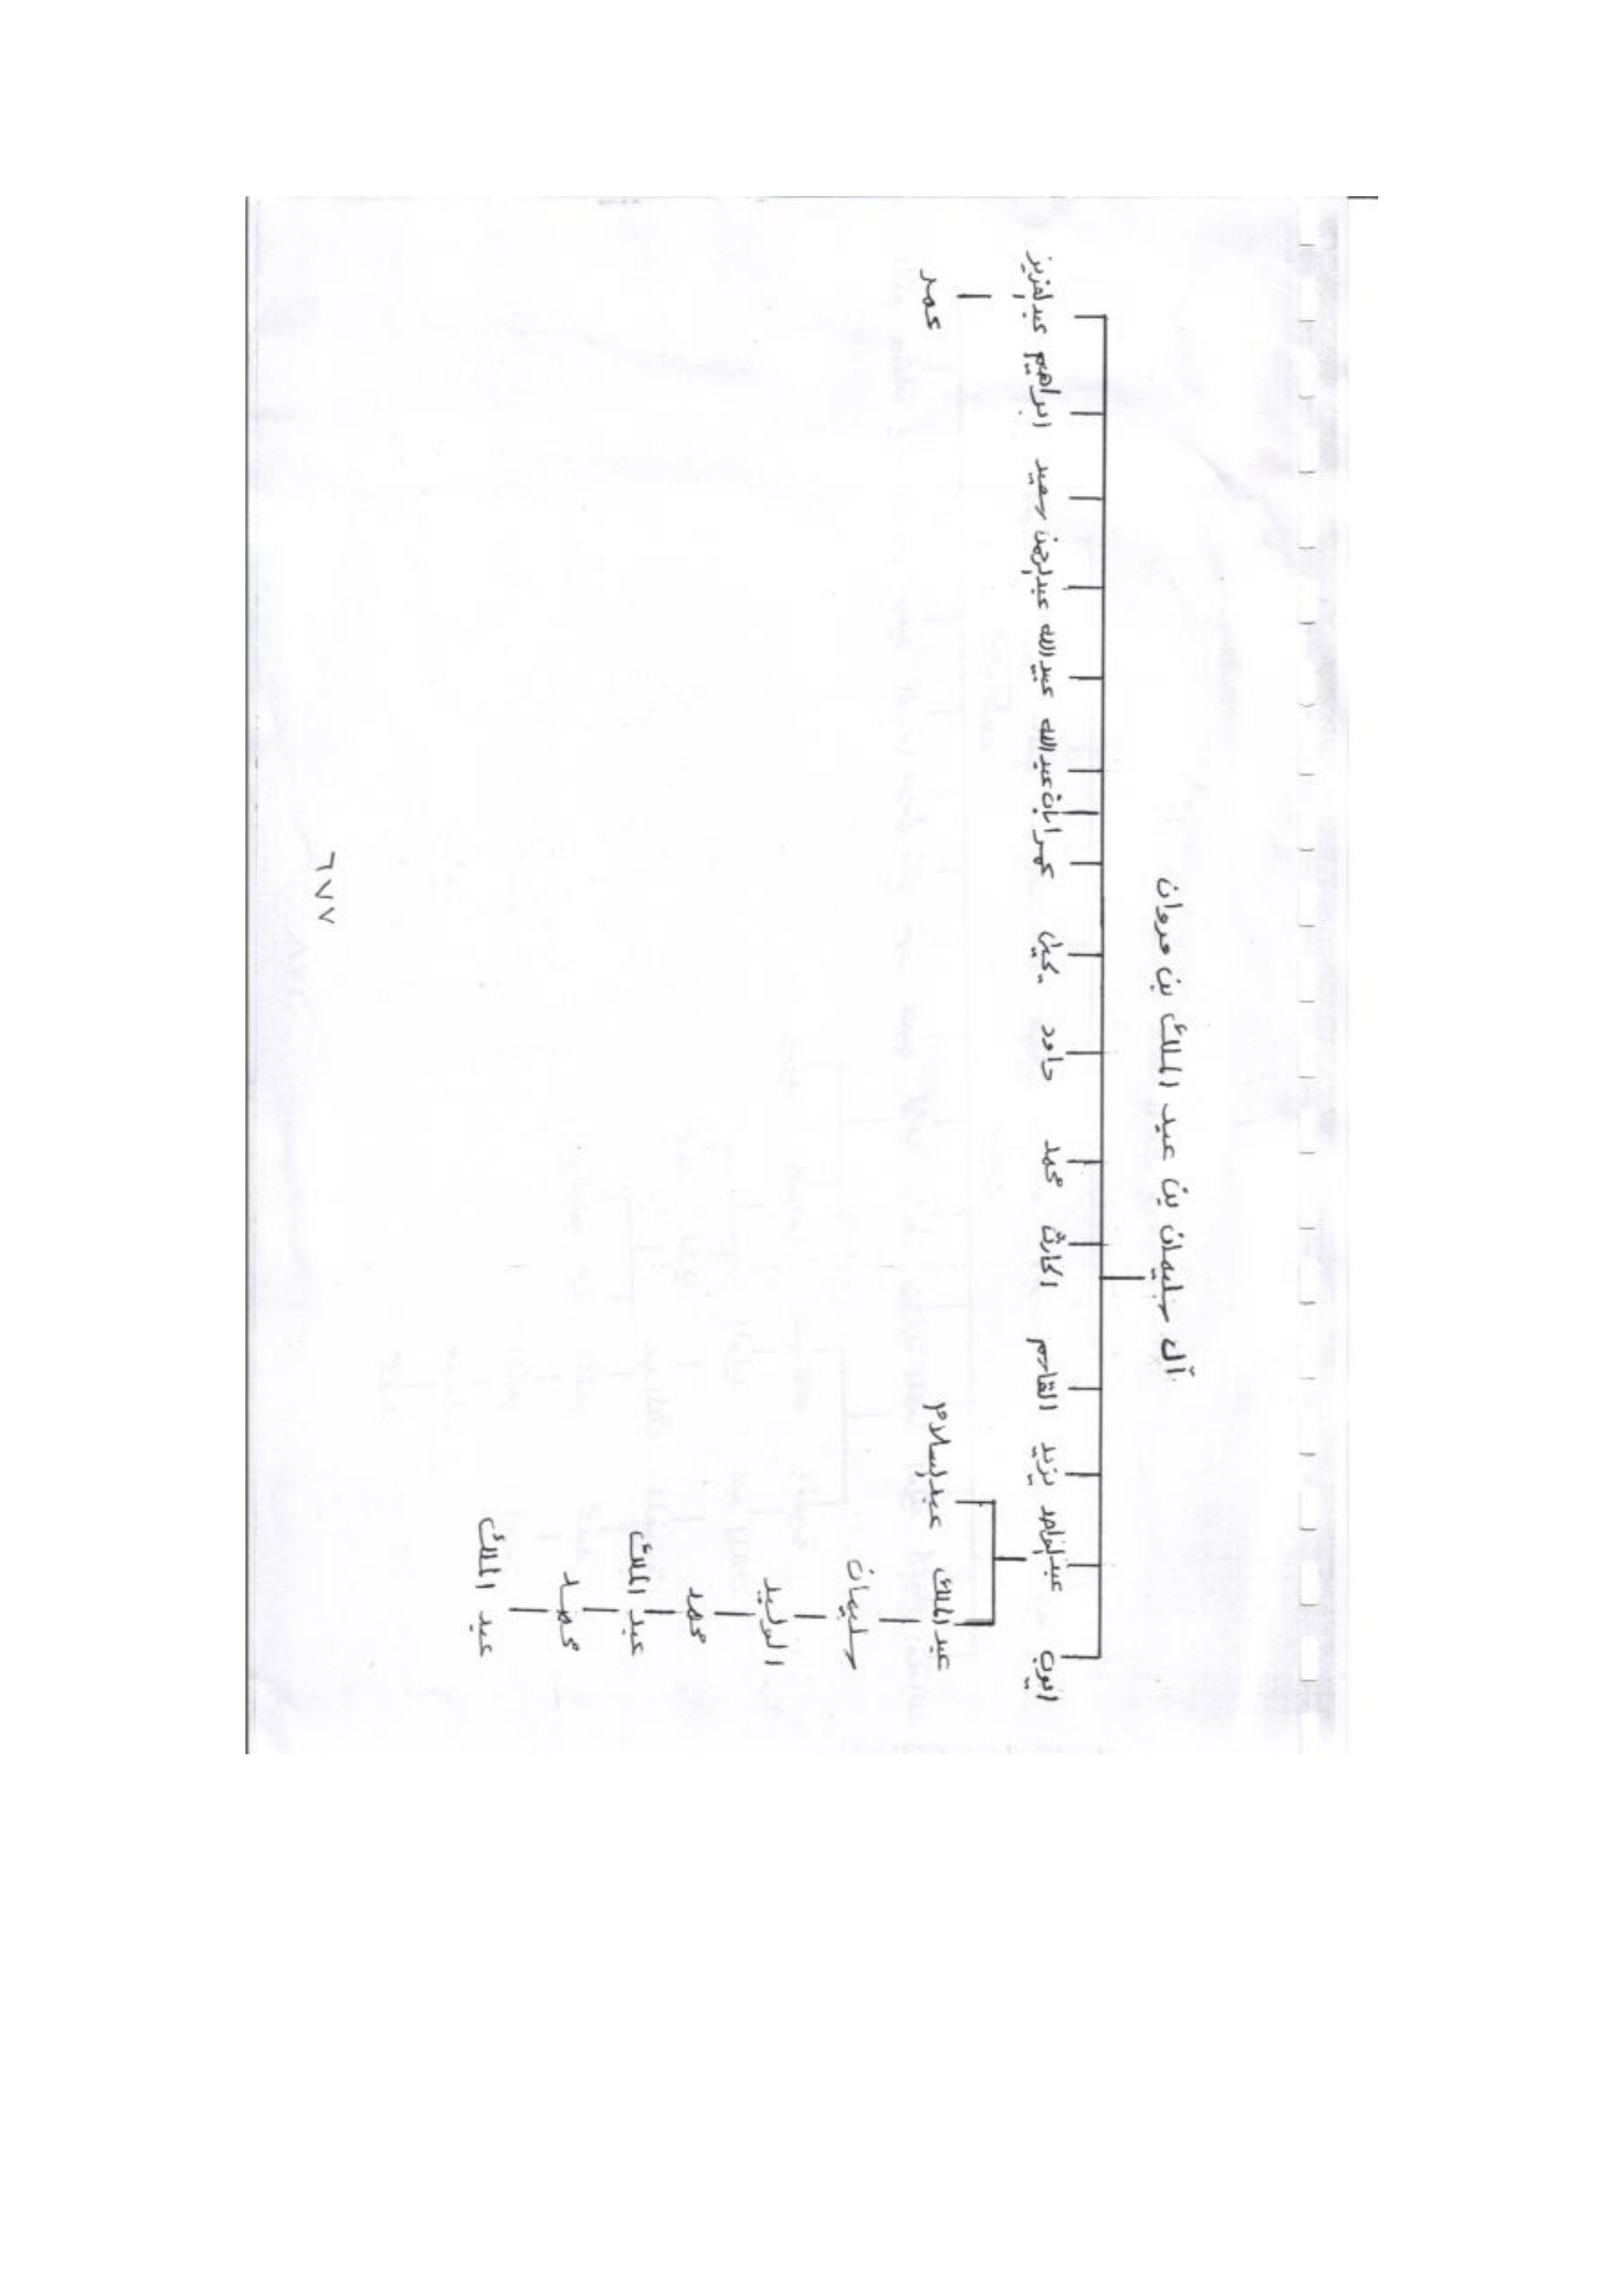 آل سليمان بن عبد الملك بن مروان
ايوب عبدالواحد يزيد القاسم الحارث محمد داود يحيى عمر ابان عبدالله عبيدالله عبدالرحمن سعيد ابراهيم عبدالعزيز
عبدالملك عبدالسلام عمر
سليمان
الوليد
محمد
عبد الملك
محمد
عبد الملك
٦٧٧